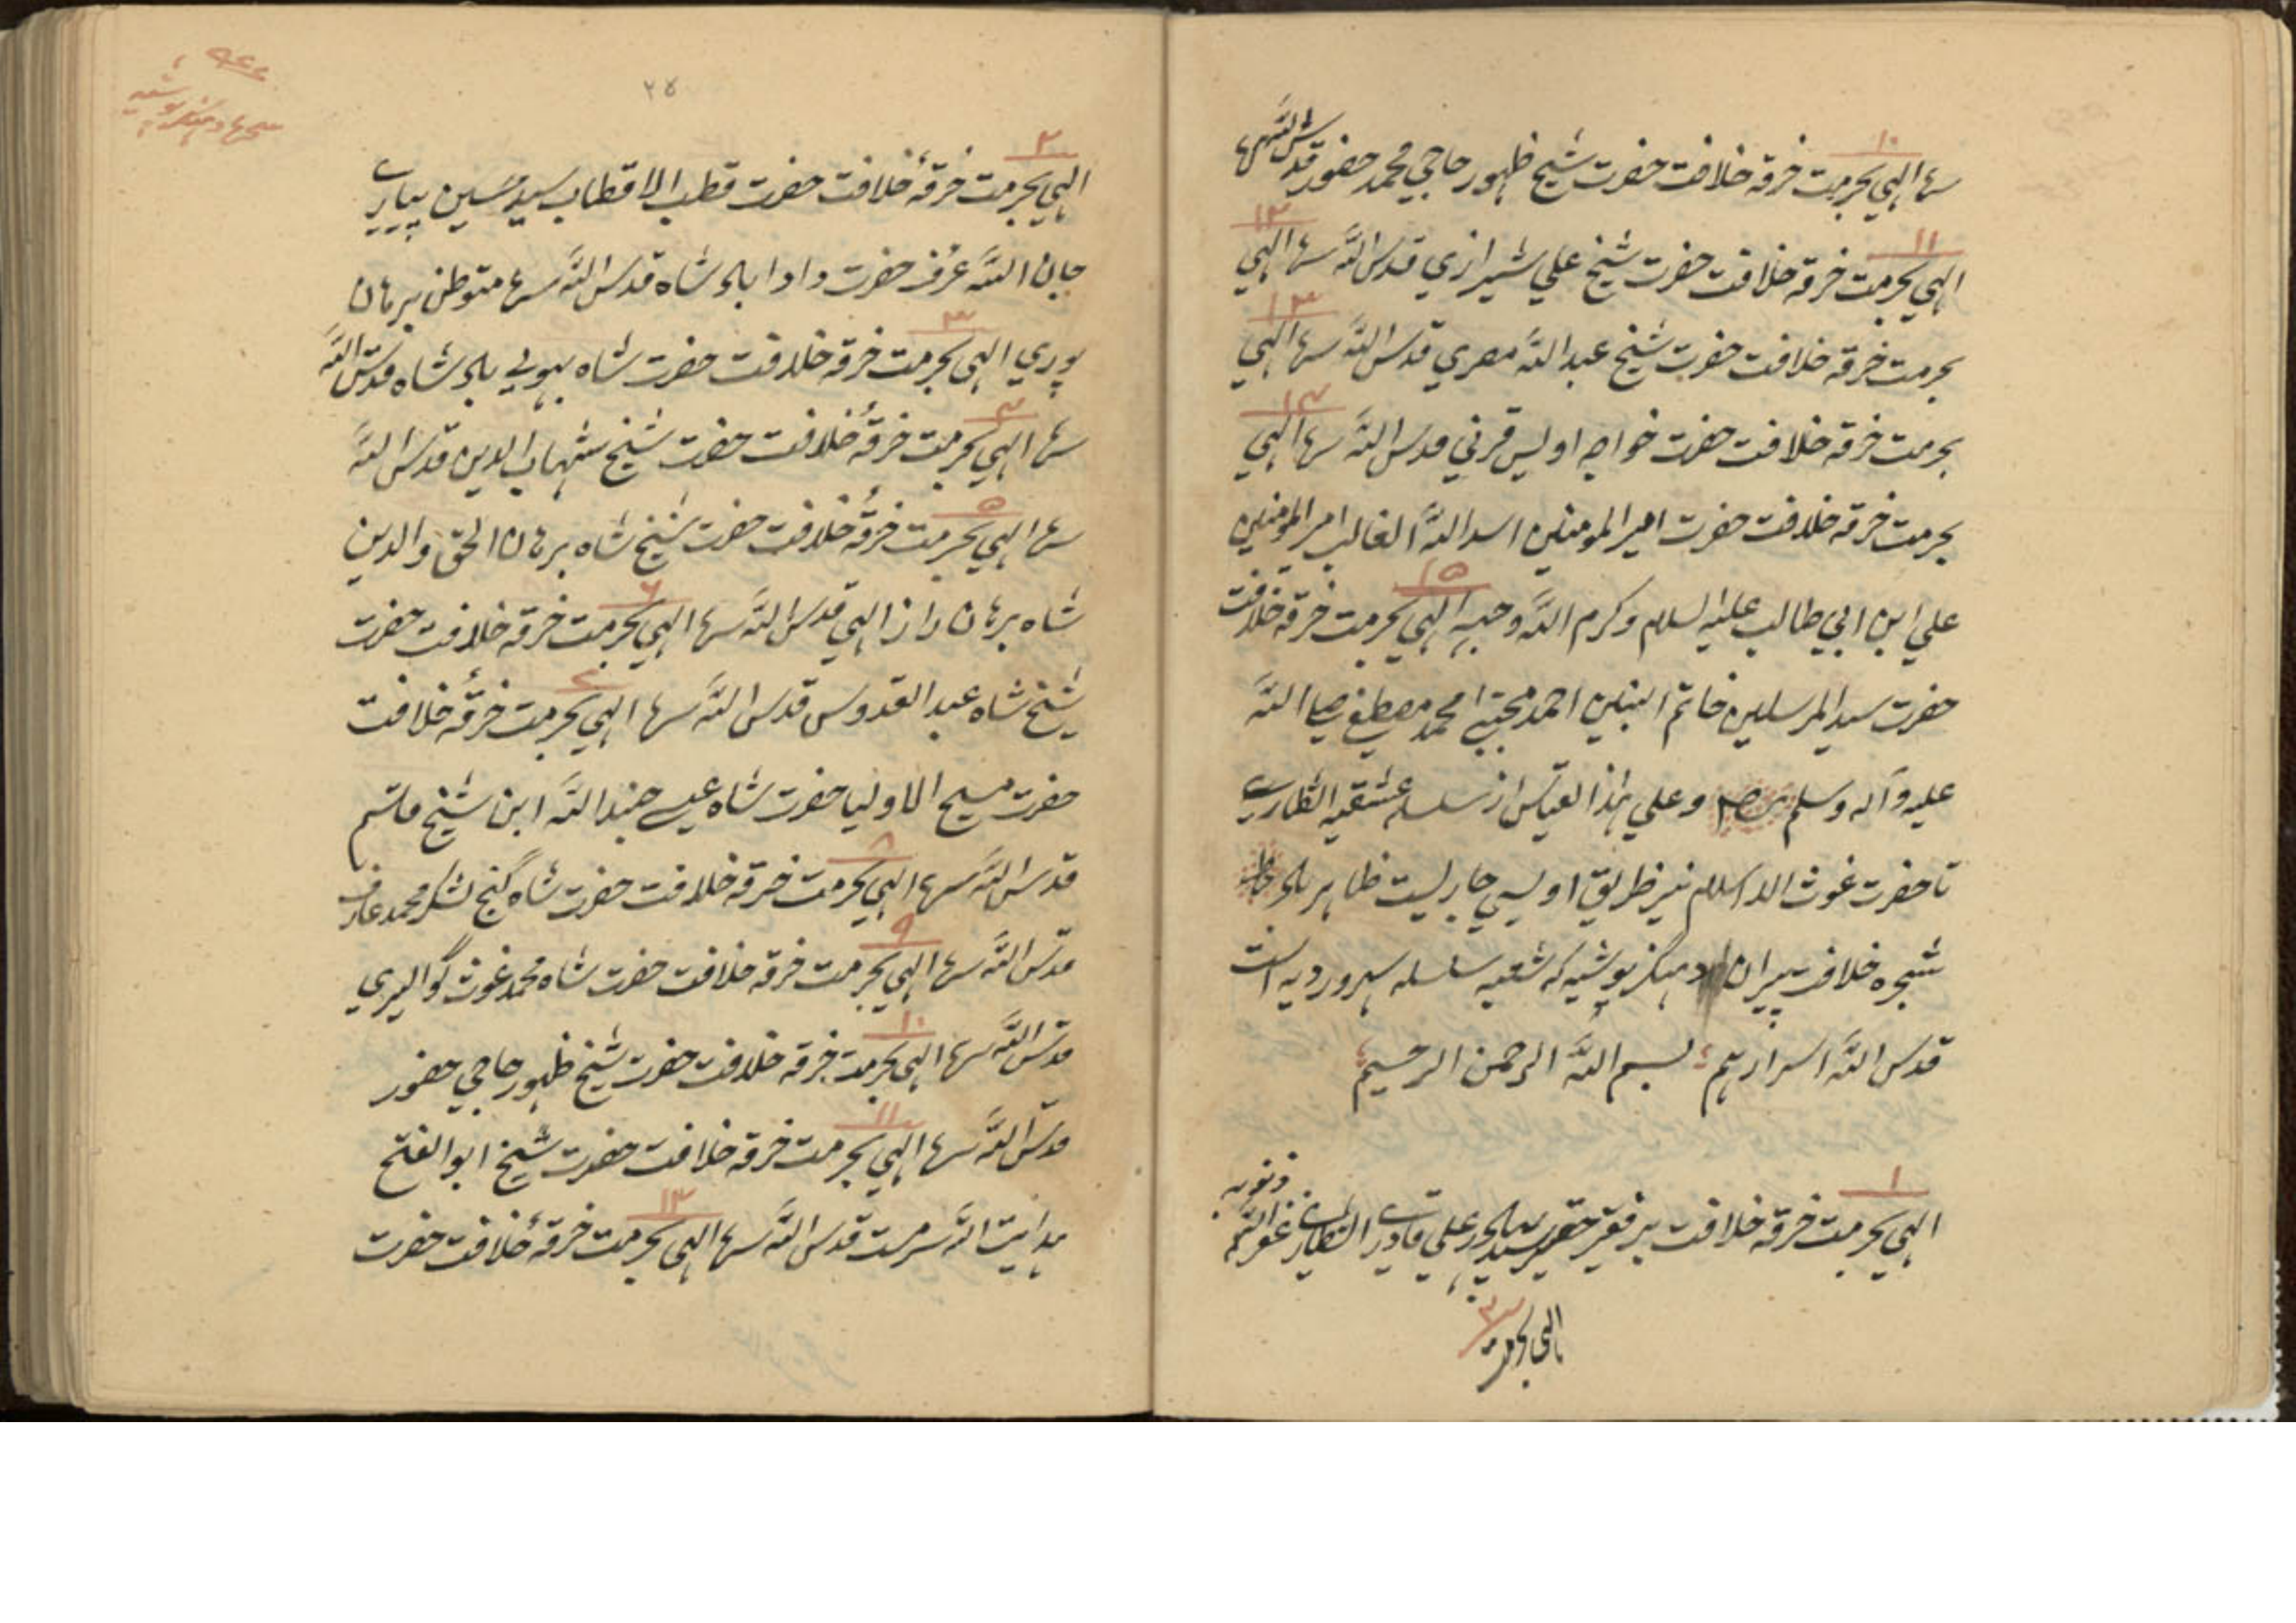 ۱۰
سرها الهي بحرمت خرقه خلافت حضرت شيخ ظهور حاجي محمد حضور قدس الله سرها
۱۱ ۱۲
الهي بحرمت خرقه خلافت حضرت شيخ علي شيرازي قدس الله سرها الهي
۱۳
بحرمت خرقه خلافت حضرت شيخ عبد الله مصري قدس الله سرها الهي
۱۴
بحرمت خرقه خلافت حضرت خواجه اويس قرني قدس الله سرها الهي
بحرمت خرقه خلافت حضرت امير المومنين اسد الله الغالب امير المومنين
۱۵
علي ابن ابي طالب عليه السلام و كرم الله وجهه الهي بحرمت خرقه خلافت
حضرت سيد المرسلين خاتم النبيين احمد مجتبى محمد مصطفى صلى الله
عليه و آله و سلم و علي هذا القياس از سلسله عشقيه الشطاريه
تا حضرت غوث الاسلام نيز طريق اويسي جاريست ظاهر
شجره خلافت پيران كه شعبه سلسله سهرورديه است
قدس الله اسرارهم بسم الله الرحمن الرحيم
۱
الهي بحرمت خرقه خلافت پير فقير حقير سيد علي قادري الشطاري غفر الله
ذنوبه
الهي بحرمت
۲۵
۲
الهي بحرمت خرقهٔ خلافت حضرت قطب الاقطاب سيد حسين پيارے
جان الله عرف حضرت دادا باو شاه قدس الله سرها متوطن برهان
۳
پوري الهي بحرمت خرقه خلافت حضرت شاه باو شاه قدس الله
۴
سرها الهي بحرمت خرقهٔ خلافت حضرت شيخ شهاب الدين قدس الله
۵
سرها الهي بحرمت خرقهٔ خلافت حضرت شيخ شاه برهان الحق والدين
۶
شاه برهان راز الهي قدس الله سرها الهي بحرمت خرقه خلافت حضرت
۷
شيخ شاه عبد القدوس قدس الله سرها الهي بحرمت خرقهٔ خلافت
حضرت مسيح الاوليا حضرت شاه عيسے جند الله ابن شيخ قاسم
۸
قدس الله سرها الهي بحرمت خرقه خلافت حضرت شاه گنج لشكر محمد عارف
۹
قدس الله سرها الهي بحرمت خرقه خلافت حضرت شاه محمد غوث گواليري
۱۰
قدس الله سرها الهي بحرمت خرقه خلافت حضرت شيخ ظهور حاجي حضور
۱۱
قدس الله سرها الهي بحرمت خرقه خلافت حضرت شيخ ابو الفتح
۱۲
هدايت الله سرمست قدس الله سرها الهي بحرمت خرقهٔ خلافت حضرت